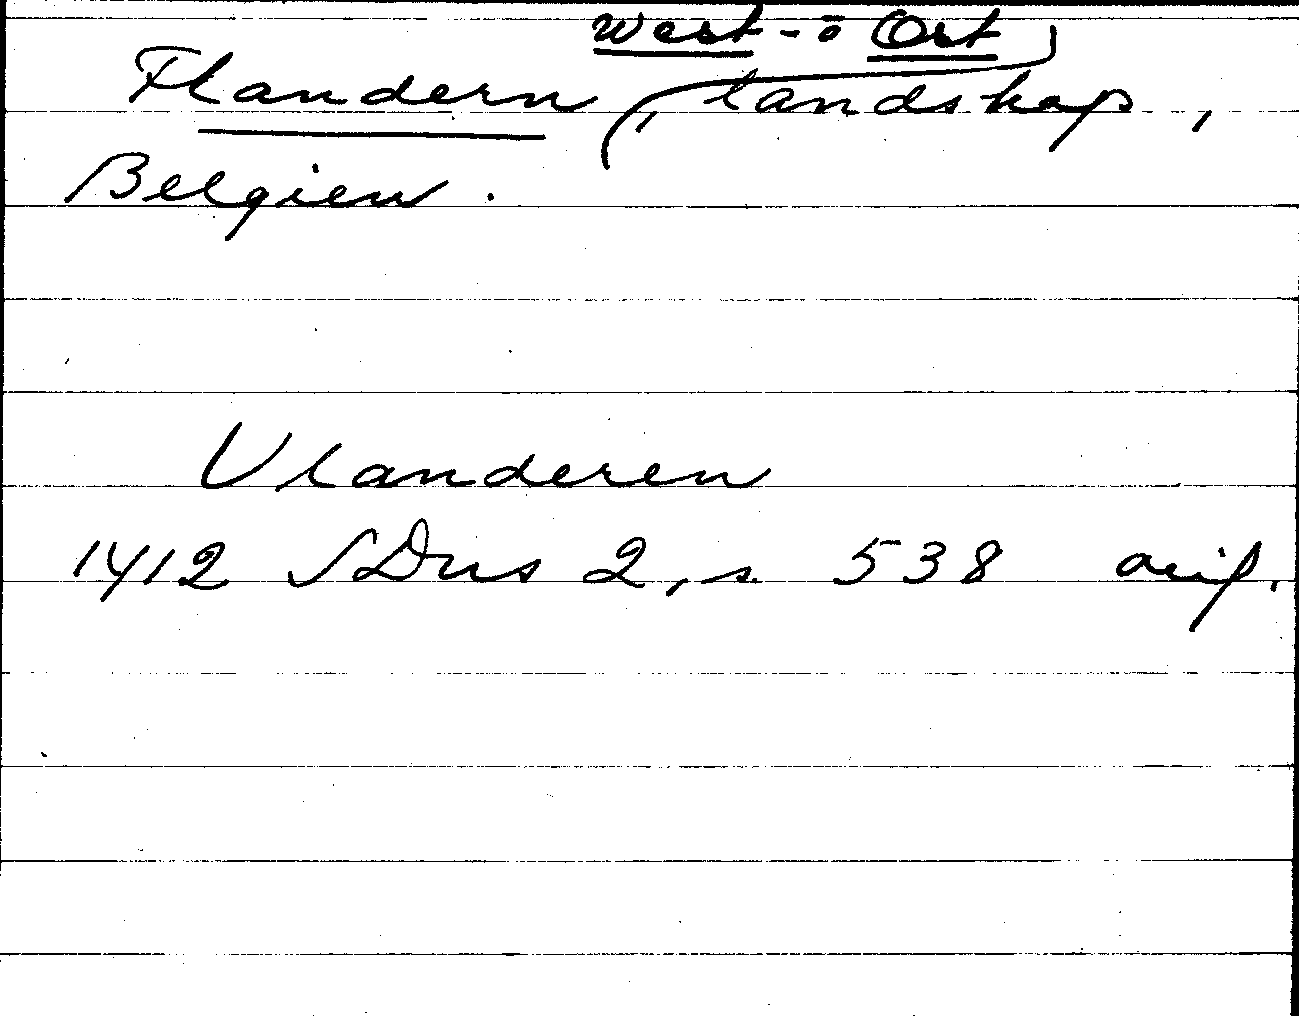 West- o Ost
Flandern, landskap,
Belgien.
Vlanderen
1412 SDns 2, s. 538 avs.